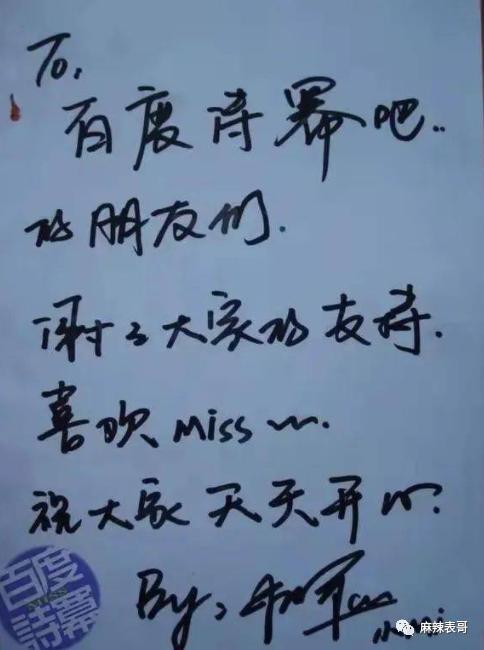 To,
百度诗幂吧..
的朋友们.
谢谢大家的支持.
喜欢 miss ~~.
祝大家天天开心.
By,
百度
MISS
詩幂
麻辣表哥